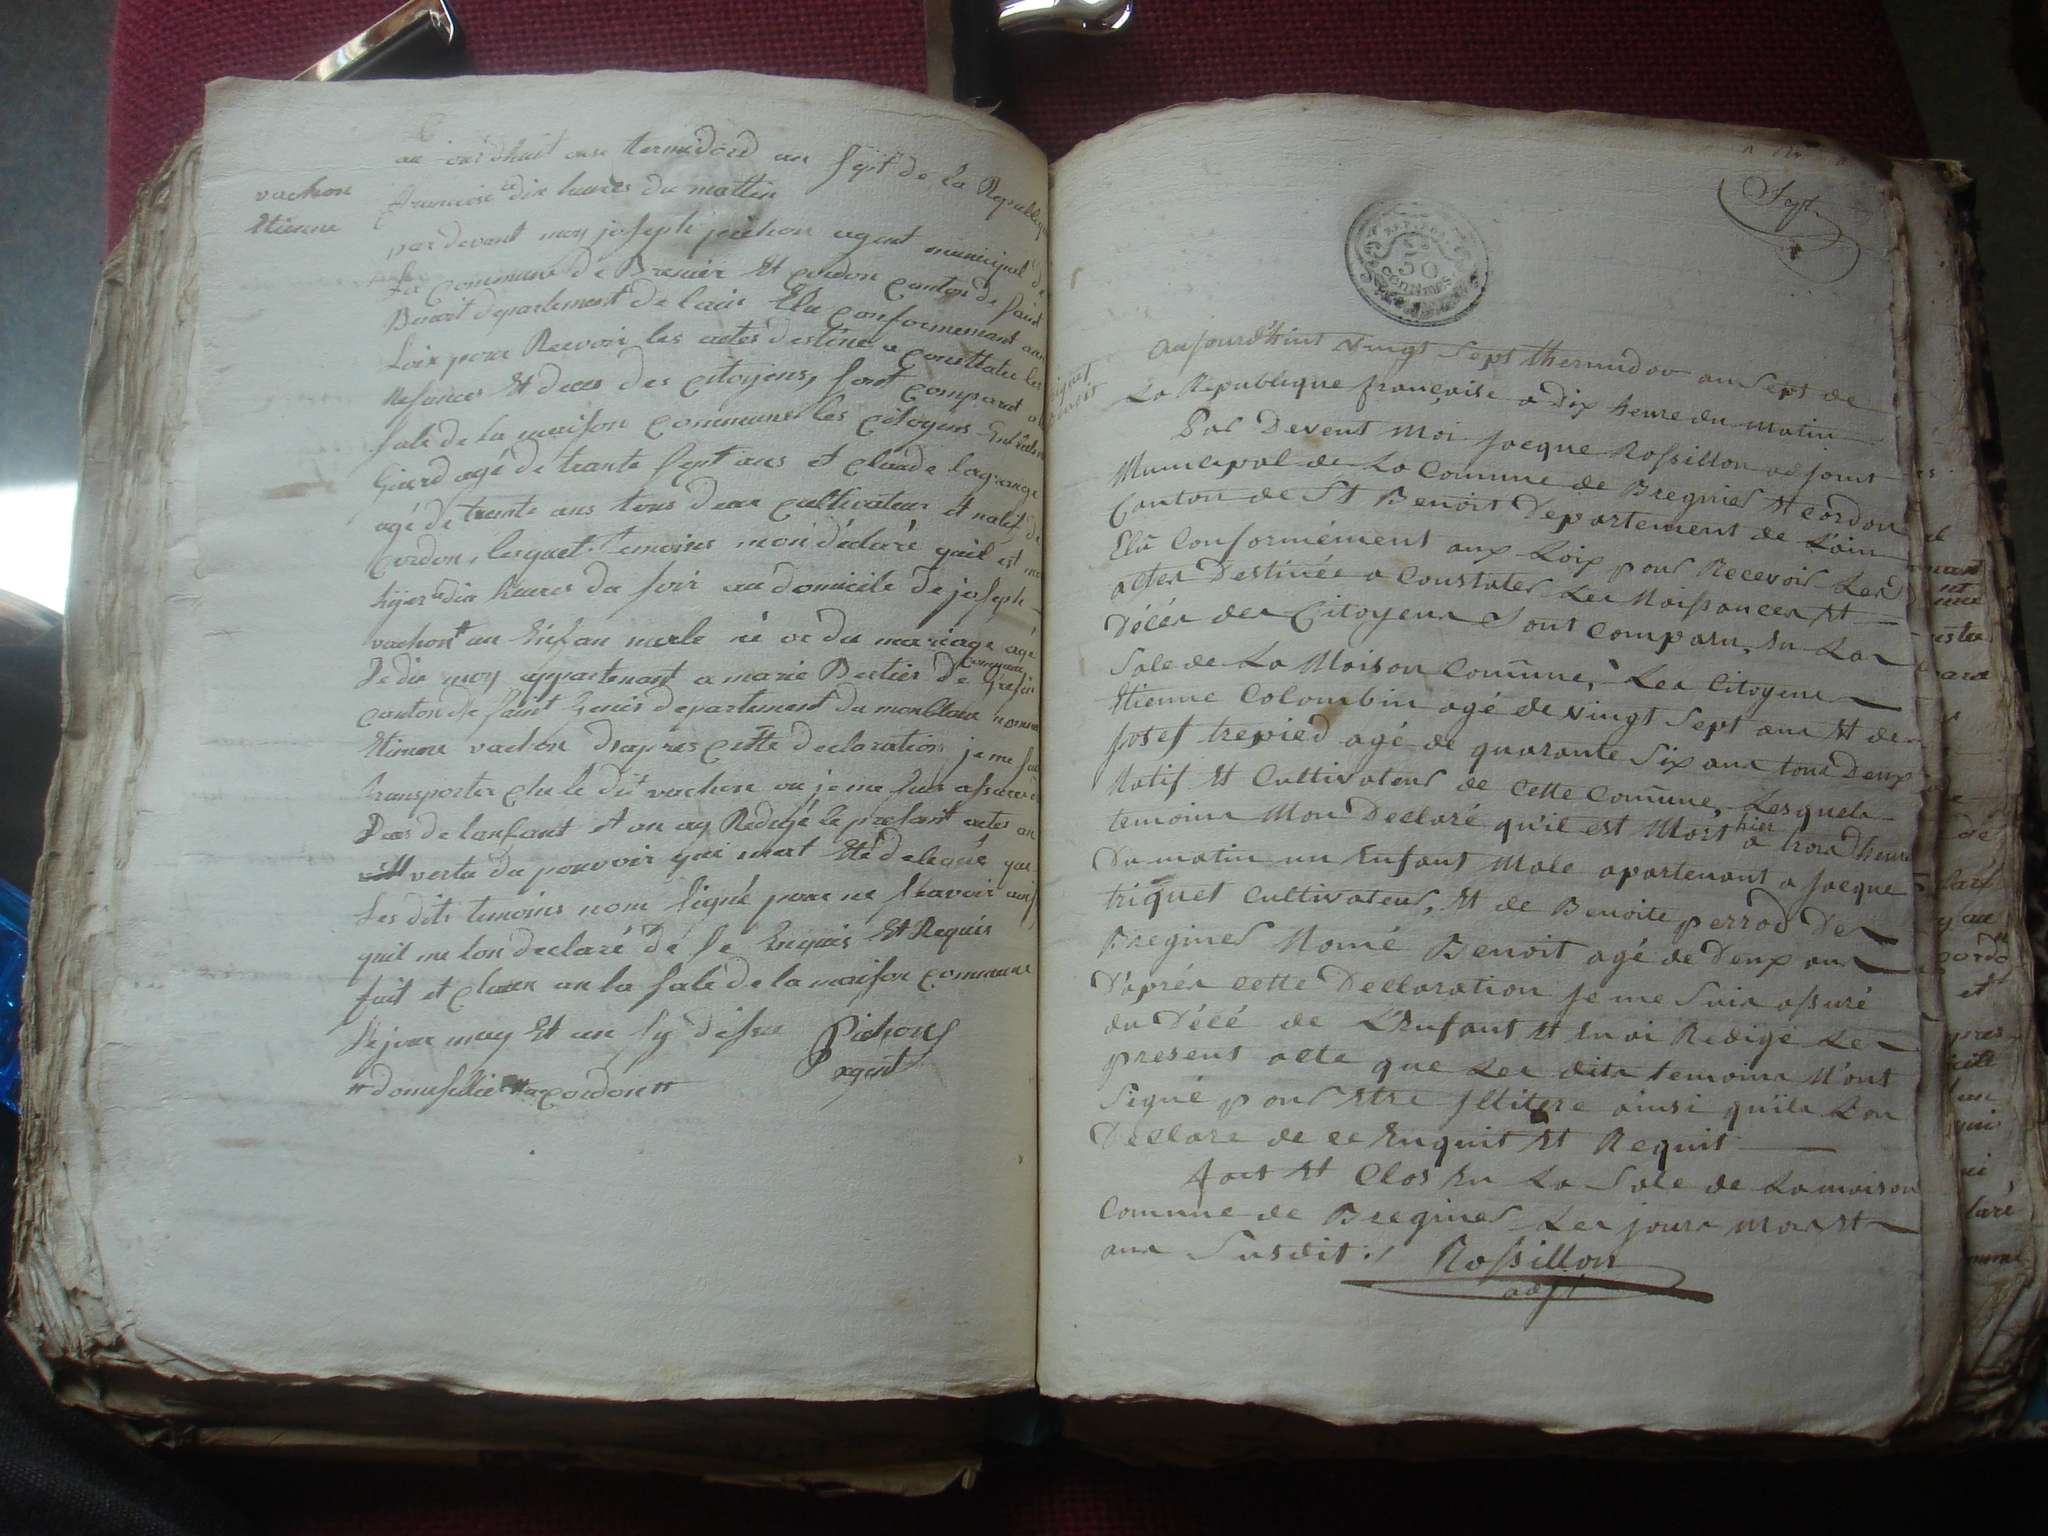 vachon
Etienne
au jourdhuit onze termidord an sept de la Republiq
francoise a dix heures du mattin
par devant moy joseph pichon agent municipal de
La commune de Brenier Et cordon canton de saint
Benoit departement de lain Elu conformement aux
Loix pour Recevoir les actes destine a constater les
Nesances Et deces des citoyens, sont comparut a la
sale de la maison commune les citoyens
Girerd agé de trante sept ans et claude lagrange
agé de trante ans tous deux cultivateur et natif de
cordon, lesquet temoins mon déclaré quil est mor
hyier a dix heures du soir au domicile de joseph
vachon # un Enfan male né or du mariage agé
de dix moy appartenant a marie Bertier de commune Gresin
canton de saint Genis departement du montblanc nommé
Etienne vachon dapres cette declaration je me suis
transporter che le dit vachon ou je me suis assurer du
Deces de lanfant et an ay Redigé le presant actes an
vertu du pouvoir qui mest Eté delegué que
Les dits temoins nont signé pour ne scavoir ainsi
quil me lon declaré de se Enquis Et Requis
fait et claux an la sale de la maison commune
Le jour moy Et an sy desus Pichon
agent
# domesillié a cordon #
Sept
REP. FRA.
50
CENTIMES
triquet
Benoit
Aujourd'huit vingt sept thermidor an sept de
La Republique françoise a dix heure du matin
Par Devent Moi Jacque Rossillon adjoint
Municipal de La Comune de Bregnier Et Cordon
Canton de St Benoit Departement de L'ain
Elû Conformément aux Loix pour Recevoir Les
actes Destinée a Constater Les Naissances Et
Décés des Citoyens Sont Comparu, En La
Sale de La Maison Comune, Les Citoyens
Etienne Colombin agé de vingt sept ans Et de
Josef trepied agé de quarante Six ans tous Deux
Natif Et Cultivateur de Cette Comune, Lesquels
temoins Mon Declaré qu'il est Mort hier a trois heure
Du matin un Enfant Male apartenant a Jacque
triquet Cultivateur, Et de Benoite perrod De
Bregnier Nomé Benoit agé de Deux ans
D'aprés cette Declaration je me Suis assuré
du Décé de L'Enfant Et En ai Redigé Le
present acte que Les dits temoins N'ont
Signé pour Etre Illitere ainsi qu'ils L'on
Declare de ce Enquit Et Requit
fait Et Clos En La Sale de La maison
Comune de Bregnier Les jours Mois Et
ans Susdit ./. Rossillon
adjt